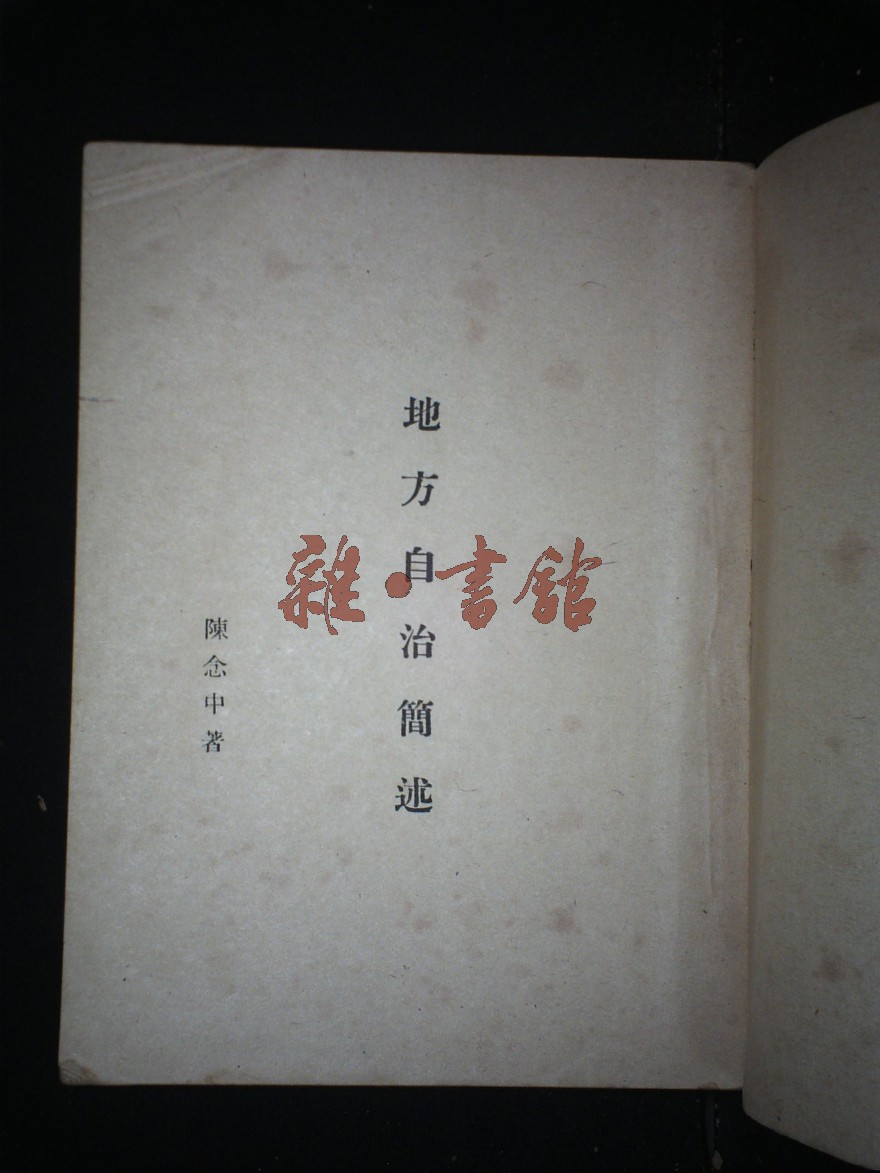 地方自治簡述
陳念中著
雜·書館